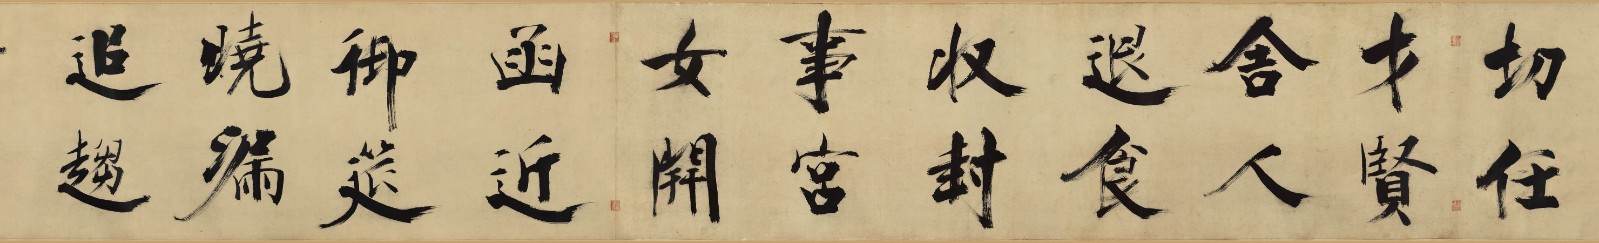 切任
才賢
舍人
退食
収封
事宮
女開
函近
御筵
曉漏
追趨